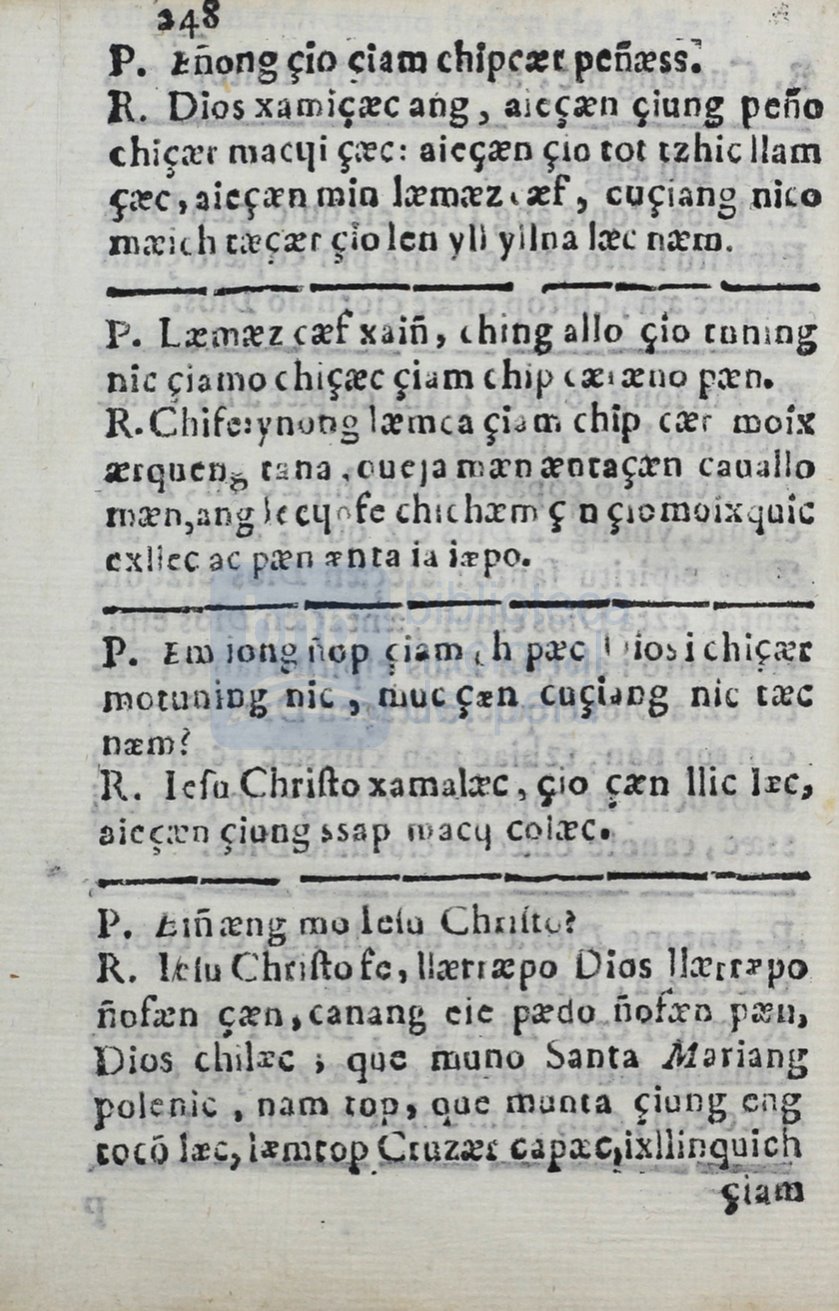 248
P. Eñong çio çiam chipcær peñæss.
R. Dios xamiçæc ang, aieçæn çiung peño
chiçær macqi çæc: aieçæn çio tot tzhic llam
çæc, aieçæn min læmæz cæf, cuçiang nico
mæich tæçær çio len yli yilna læc næm.
P. Læmæz cæf xaiñ, ching allo çio tuning
nic çiamo chiçæc çiam chip cæræno pæn.
R. Chife:ynong læmca çiam chip cær moix
ærqueng tana, oueja mæn æntaçæn cauallo
mæn, ang fe chichæm çiomoixquic
exllec ac pæn ænta ia iæpo.
P. Em iong ñop çiam ch pæc Dios i chiçær
motuning nic, muc çæn cuçiang nic tæc
næm?
R. Iesu Chriſto xamalæc, çio çæn llic læc,
aieçæn çiung ssap macq colæc.
P. Eiñæng mo Iesu Chriſto?
R. Ieſu Chriſto fe, llærræpo Dios llærræpo
ñofæn çæn, canang eie pædo ñofæn pæn,
Dios chilæc; que muno Santa Mariang
polenic, nam top, que munta çiung eng
tocō læc, læmtop Cruzær capæc, ixllinquich
çiam